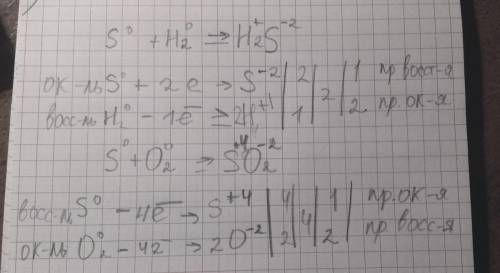 S⁰ + H₂⁰ ⇒ H₂⁺S⁻²
ок-ль S⁰ + 2e → S⁻² | 2 | 2 | 1 пр восст-я
восс-ль H₂⁰ - 1e̅ ⇒ 2H⁺¹ | 1 | | 2 пр. ок-я
S⁰ + O₂⁰ ⇒ S⁺⁴O₂⁻²
восс-ль S⁰ - 4e̅ → S⁺⁴ | 4 | 4 | 1 | пр. ок-я
ок-ль O₂⁰ - 4e̅ → 2O⁻² | 2 | | 2 | пр восс-я